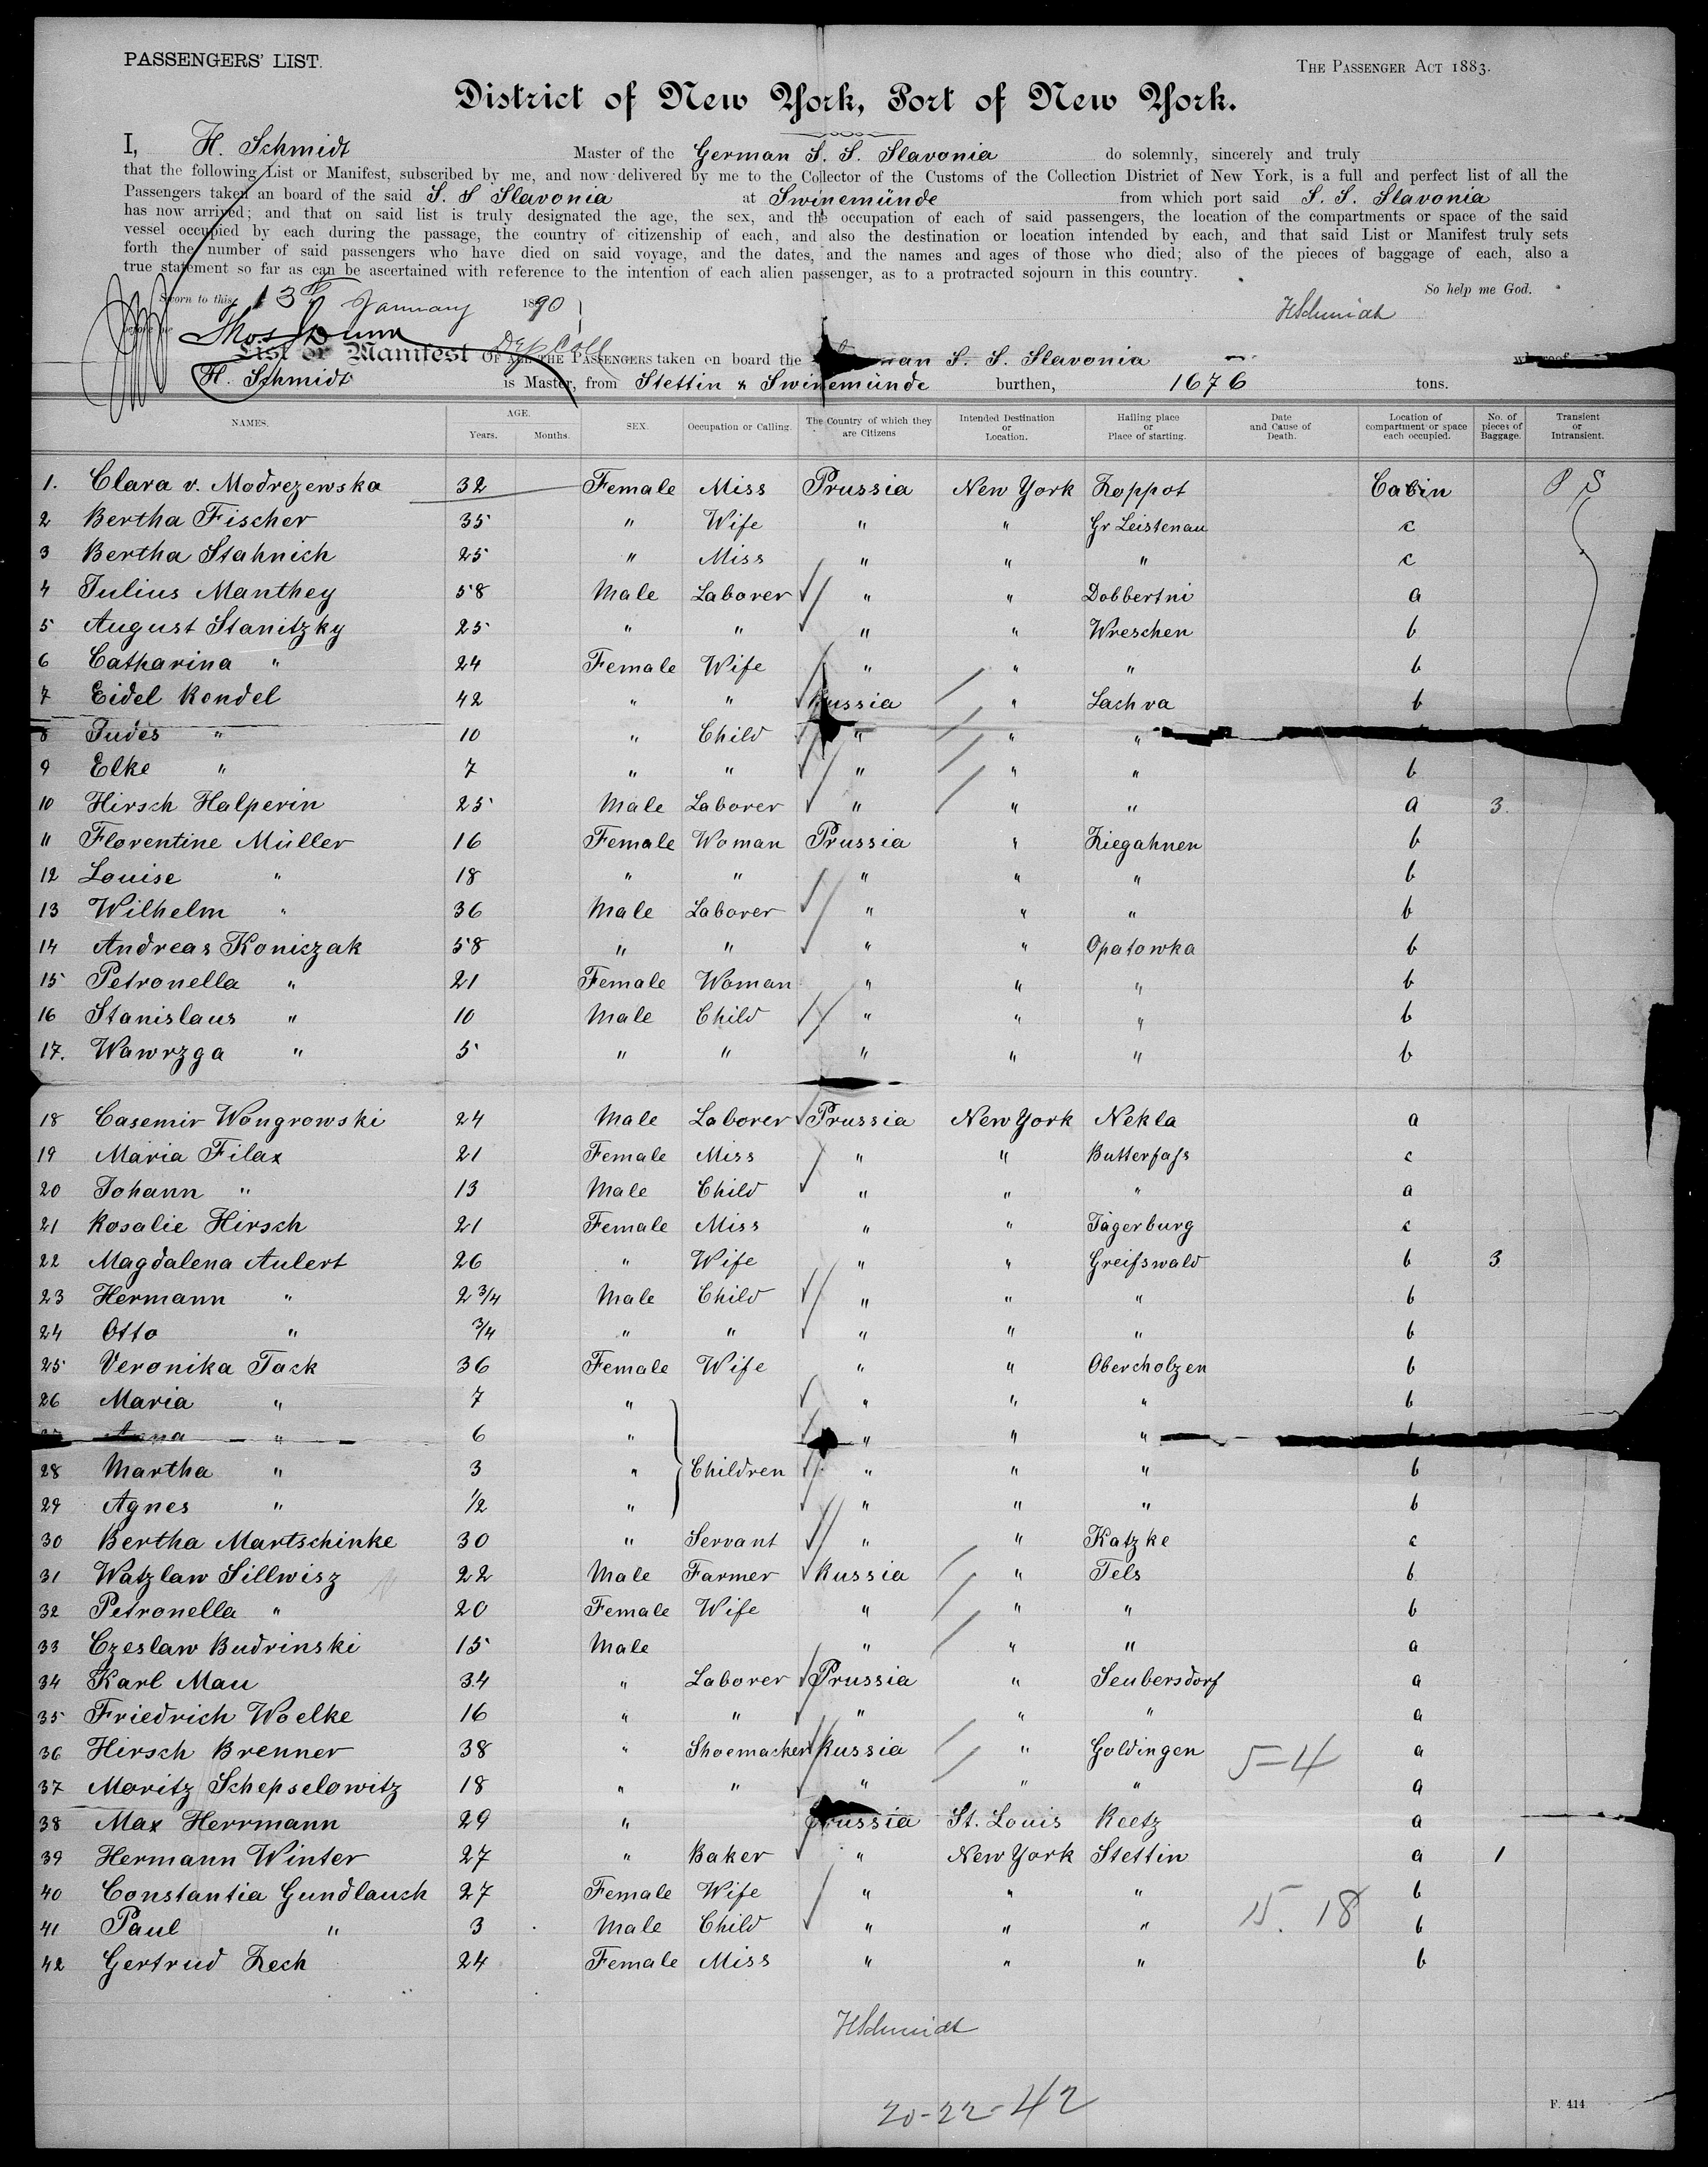 PASSENGERS' LIST.
THE PASSENGER ACT 1883.
District of New York, Port of New York.
I, H. Schmidt Master of the German S. S. Slavonia do solemnly, sincerely and truly
that the following List or Manifest, subscribed by me, and now delivered by me to the Collector of the Customs of the Collection District of New York, is a full and perfect list of all the
Passengers taken an board of the said S. S Slavonia at Swinemünde from which port said S. S. Slavonia
has now arrived; and that on said list is truly designated the age, the sex, and the occupation of each of said passengers, the location of the compartments or space of the said
vessel occupied by each during the passage, the country of citizenship of each, and also the destination or location intended by each, and that said List or Manifest truly sets
forth the number of said passengers who have died on said voyage, and the dates, and the names and ages of those who died; also of the pieces of baggage of each, also a
true statement so far as can be ascertained with reference to the intention of each alien passenger, as to a protracted sojourn in this country.
So help me God.
Sworn to this 13th January 1890
HSchmidt
before me Thos Dunn
Dep Coll
List or Manifest OF ALL THE PASSENGERS taken on board the German S. S. Slavonia whereof
H. Schmidt is Master, from Stettin & Swinemünde burthen, 1676 tons.
NAMES. AGE. Years. Months. SEX. Occupation or Calling. The Country of which they are Citizens Intended Destination or Location. Hailing place or Place of starting. Date and Cause of Death. Location of compartment or space each occupied. No. of pieces of Baggage. Transient or Intransient.
1. Clara v. Modrezewska 32 Female Miss Prussia New York Zoppot Cabin P S
2 Bertha Fischer 35 " Wife " " Gr Leistenau c
3 Bertha Stahnich 25 " Miss " " " c
4 Julius Manthey 58 Male Laborer " " Dobbertni a
5 August Stanitzky 25 " " " " Wreschen b
6 Catharina " 24 Female Wife " " " b
7 Eidel Kondel 42 " " Russia " Lachva b
8 Judes " 10 " Child " " "
9 Elke " 7 " " " " " b
10 Hirsch Halperin 25 Male Laborer " " " a 3
11 Florentine Müller 16 Female Woman Prussia " Ziegahnen b
12 Louise " 18 " " " " " b
13 Wilhelm " 36 Male Laborer " " " b
14 Andreas Koniczak 58 " " " " Opatowka b
15 Petronella " 21 Female Woman " " " b
16 Stanislaus " 10 Male Child " " " b
17. Wawrzga " 5 " " " " " b
18 Casemir Wongrowski 24 Male Laborer Prussia New York Nekla a
19 Maria Filax 21 Female Miss " " Butterfass c
20 Johann " 13 Male Child " " " a
21 Rosalie Hirsch 21 Female Miss " " Jägerburg c
22 Magdalena Aulert 26 " Wife " " Greifswald b 3
23 Hermann " 2 3/4 Male Child " " " b
24 Otto " 3/4 " " " " " b
25 Veronika Tack 36 Female Wife " " Obercholzen b
26 Maria " 7 " " " " b
27 Anna " 6 " " " " b
28 Martha " 3 " Children " " " b
29 Agnes " 1/2 " " " " b
30 Bertha Martschinke 30 " Servant " " Katzke c
31 Watzlaw Sillwisz 22 Male Farmer Russia " Tels b
32 Petronella " 20 Female Wife " " " b
33 Czeslaw Budrinski 15 Male " " " a
34 Karl Mau 34 " Laborer Prussia " Seubersdorf a
35 Friedrich Woelke 16 " " " " " a
36 Hirsch Brenner 38 " Shoemacker Russia " Goldingen a
5-4
37 Moritz Schepselowitz 18 " " " " " a
38 Max Herrmann 29 " Prussia St. Louis Reetz a
39 Hermann Winter 27 " Baker " New York Stettin a 1
40 Constantia Gundlauch 27 Female Wife " " " b
15. 18
41 Paul " 3 Male Child " " " b
42 Gertrud Zech 24 Female Miss " " " b
HSchmidt
20-22-42
F. 414